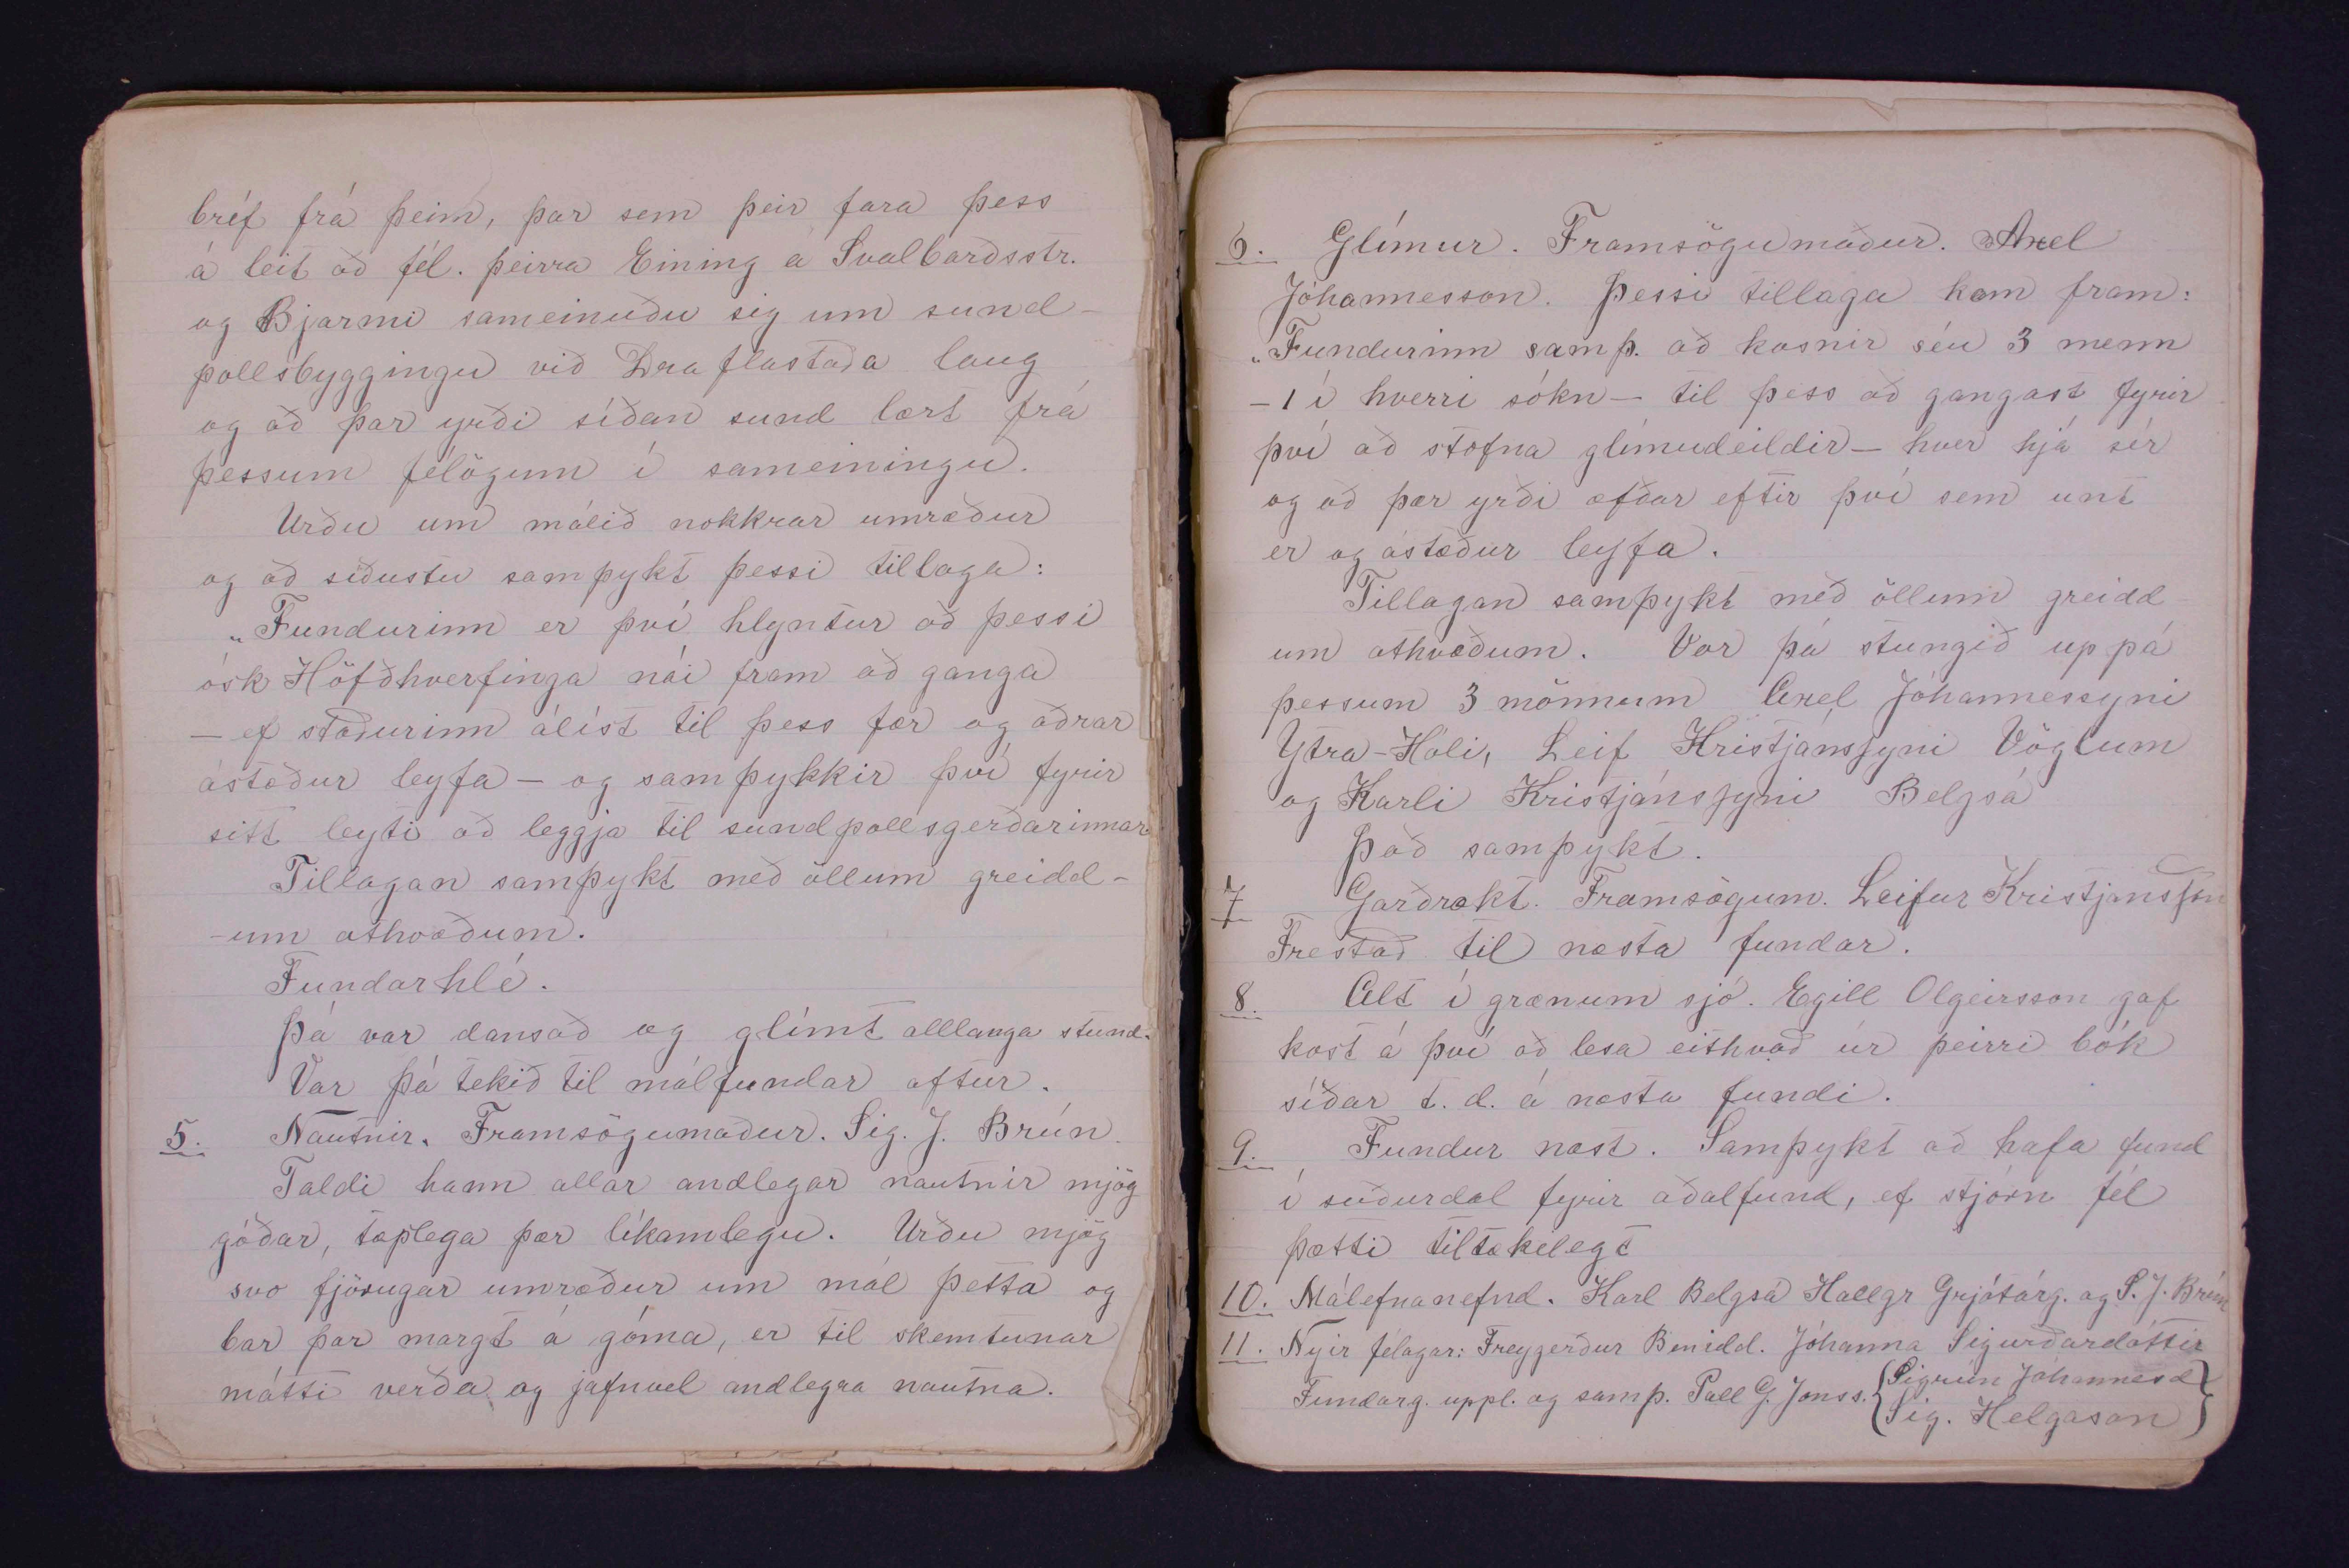 bréf frá þeim, þar sem þeir fara þess
á leit að fél. þeirra Eining á Svalbarðsstr.
og Bjarmi sameinuðu sig um sund-
pollsbyggingu við Draflastaða laug
og að þar yrði síðan sund lært frá
þessum félögum í sameiningu.
Urðu um málið nokkrar umræður
og að síðustu samþykt þessi tillaga:
„Fundurinn er því hlyntur að þessi
ósk Höfðhverfinga nái fram að ganga
— ef staðurinn álíst til þess fær og aðrar
ástæður leyfa — og samþykkir því fyrir
sitt leyti að leggja til sundpollsgerðarinnar
Tillagan samþykt með öllum greidd-
-um athvæðum.
Fundarhlé.
Þá var dansað og glímt alllanga stund.
Var þá tekið til málfundar aftur.
5. Nautnir. Framsögumaður. Sig. J. Brún.
Taldi hann allar andlegar nautnir mjög
góðar, tæplega þær líkamlegu. Urðu mjög
svo fjörugar umræður um mál þetta og
bar þar margt á góma, er til skemtunar
mátti verða og jafnvel andlegra nautna.
6. Glímur. Framsögumaður. Axel
Jóhannesson. Þessi tillaga kom fram:
„Fundurinn samþ. að kosnir séu 3 menn
— 1 í hverri sókn — til þess að gangast fyrir
því að stofna glímudeildir — hver hjá sér
og að þær yrði æfðar eftir því sem unt
er og ástæður leyfa.
Tillagan samþykt með öllum greidd-
um athvæðum. Var þá stungið uppá
þessum 3 mönnum Axel Jóhannessyni
Ytra-Hóli, Leif Kristjánssyni Vöglum
og Karli Kristjánssyni Belgsá
Það samþykt.
7 Garðrækt. Framsögum. Leifur Kristjansson
Frestað til næsta fundar.
8. Alt í grænum sjó. Egill Olgeirsson gaf
kost á því að lesa eithvað úr þeirri bók
síðar t.d. á næsta fundi.
9. Fundur næst. Samþykt að hafa fund
í suðurdal fyrir aðalfund, ef stjórn fél
þætti tiltækilegt
10. Málefnanefnd. Karl Belgsá Hallgr Grjótárg. og S. J. Brún
11. Nýir félagar: Freygerður Benidd. Jóhanna Sigurðardóttir
Fundarg. uppl. og samþ. Páll G. Jónss. {Sigrún Jóhannesd
Sig. Helgason}